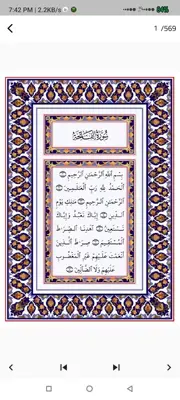 7:42 PM | 2.2KB/s
84%
1 /569
سورة الفاتحة
بِسْمِ اللَّهِ الرَّحْمَٰنِ الرَّحِيمِ ۝
الْحَمْدُ لِلَّهِ رَبِّ الْعَالَمِينَ ۝
الرَّحْمَٰنِ الرَّحِيمِ ۝ مَالِكِ يَوْمِ
الدِّينِ ۝ إِيَّاكَ نَعْبُدُ وَإِيَّاكَ
نَسْتَعِينُ ۝ اهْدِنَا الصِّرَاطَ
الْمُسْتَقِيمَ ۝ صِرَاطَ الَّذِينَ
أَنْعَمْتَ عَلَيْهِمْ غَيْرِ الْمَغْضُوبِ
عَلَيْهِمْ وَلَا الضَّالِّينَ ۝